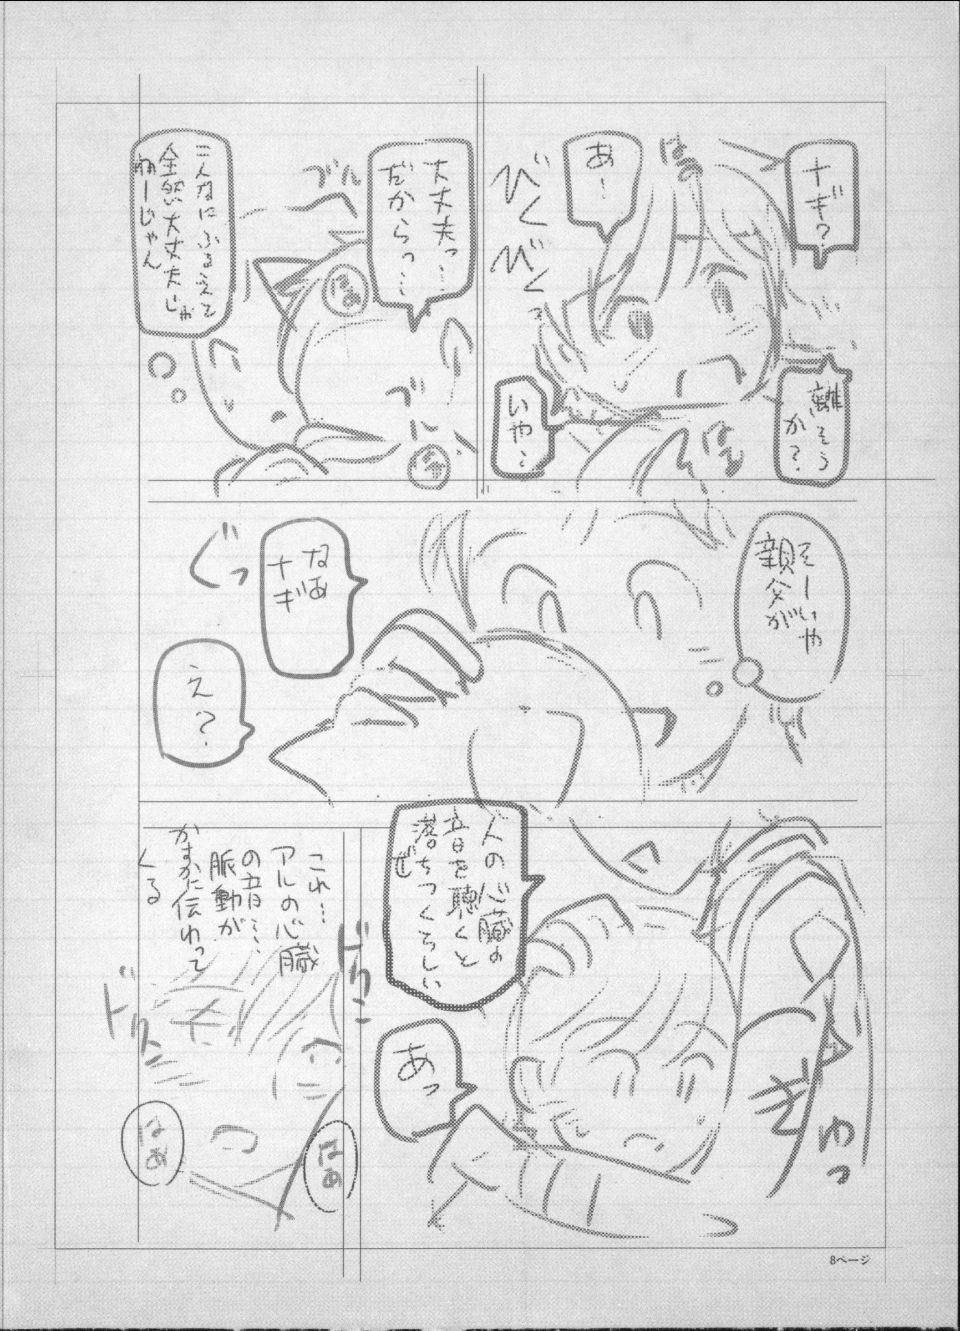 ナギ?
離そう
か?
あ…
いや…
びく
びく
はぁ
はぁ
大丈夫っ…
だからっ…
ブル
ブル
はぁ
はぁ
こんなにふるえて
全然大丈夫じゃ
ねーじゃん
そーいや
親父が
なぁ
ナギ
ぐっ
え?
人の心臓の
音を聴くと
落ちつくらしい
ぜ
あっ
ぎゅっ
これ…
アルの心臓
の音…
脈動が
かすかに伝わって
くる
ドクン
ドクン
はぁ
はぁ
8ページ